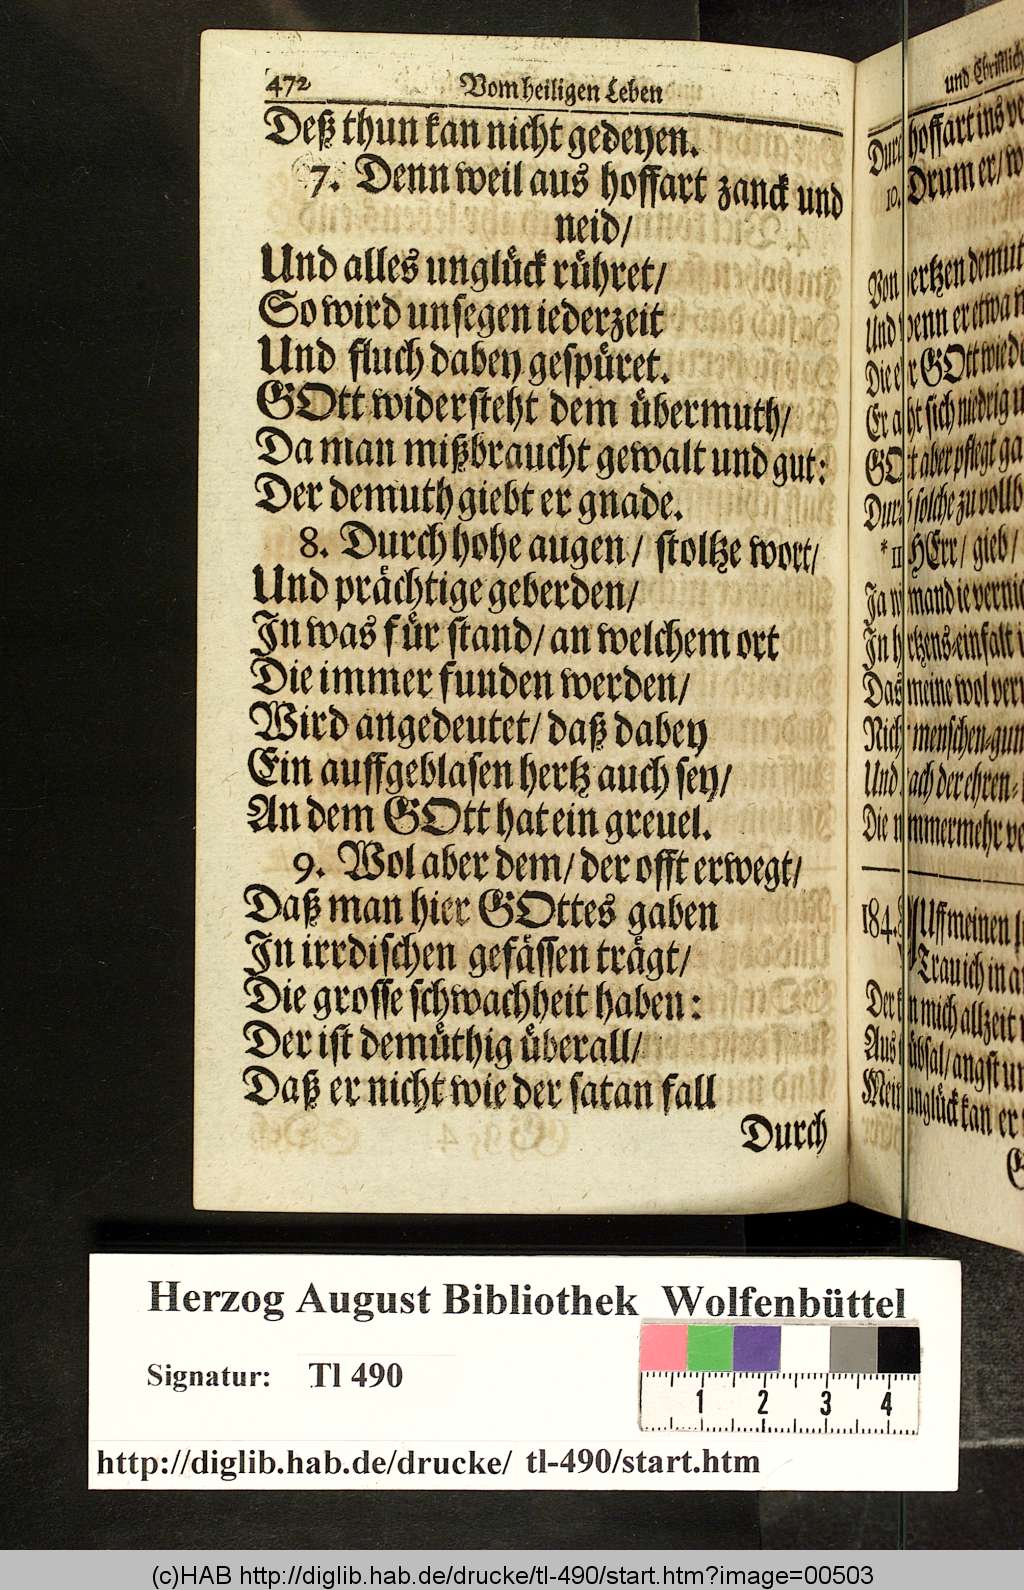 472 Vom heiligen Leben
Deß thun kan nicht gedeyen.
7. Denn weil aus hoffart zanck und
neid/
Und alles unglück rühret/
So wird unsegen iederzeit
Und fluch dabey gespüret.
GOtt widersteht dem übermuth/
Da man mißbraucht gewalt und gut:
Der demuth giebt er gnade.
8. Durch hohe augen/ stoltze wort/
Und prächtige geberden/
In was für stand/ an welchem ort
Die immer funden werden/
Wird angedeutet/ daß dabey
Ein auffgeblasen hertz auch sey/
An dem GOtt hat ein greuel.
9. Wol aber dem/ der offt erwegt/
Daß man hier GOttes gaben
In irrdischen gefässen trägt/
Die grosse schwachheit haben:
Der ist demüthig überall/
Daß er nicht wie der satan fall
Durch
und Christlich
hoffart ins
10. Drum er/
Von hertzen demut
Und wenn er etwa
GOtt
Er acht sich niedrig
GOtt aber pflegt
Durch solche zu
* 11 HErr/ gieb/
Ja
In hertzens-einfalt
Das meine wol
Nicht menschen-
Und nach der ehren-
Die nimmermehr
184. AUff meinen
Trau ich in
Der kan mich allzeit
Aus trübsal/ angst
Mein unglück kan er
Herzog August Bibliothek Wolfenbüttel
Signatur: Tl 490
1 2 3 4
http://diglib.hab.de/drucke/ tl-490/start.htm
(c)HAB http://diglib.hab.de/drucke/tl-490/start.htm?image=00503